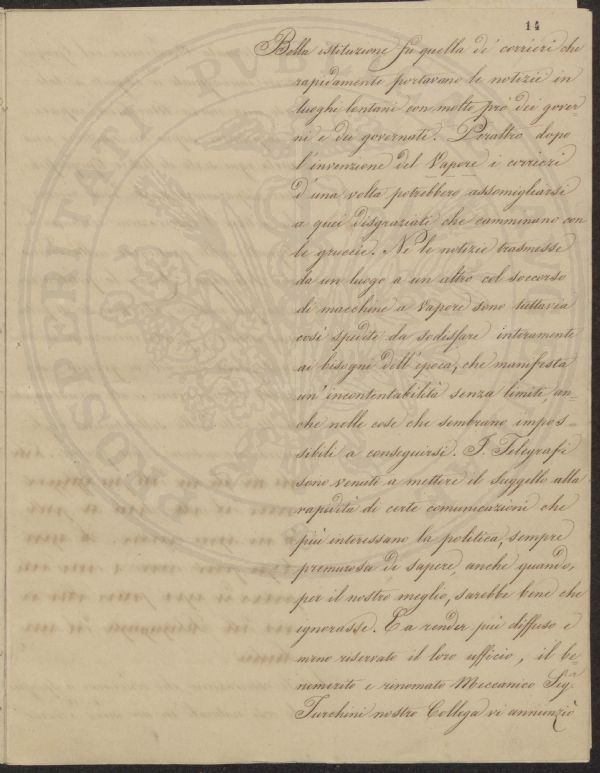 14
Bella istituzione fu quella de' corrieri che
rapidamente portavano le notizie in
luoghi lontani con molto prò dei gover=
ni e dei governati. Peraltro dopo
l'invenzione del Vapore i corrieri
d'una volta potrebbero assomigliarsi
a quei disgraziati che camminano con
le gruccie. Nè le notizie trasmesse
da un luogo a un altro col soccorso
di macchine a Vapore sono tuttavia
così spedite da sodisfare interamente
ai bisogni dell'epoca, che manifesta
un'incontentabilità senza limiti an=
che nelle cose che sembrano impos=
sibili a conseguirsi. I Telegrafi
sono venuti a mettere il suggello alla
rapidità di certe comunicazioni che
più interessano la politica, sempre
premurosa di sapere anche quando,
per il nostro meglio, sarebbe bene che
ignorasse. E a render più diffuso e
meno riservato il loro ufficio, il be=
nemerito e rinomato Meccanico Sig.r
Turchini nostro Collega vi annunziò
PROSPERITATI